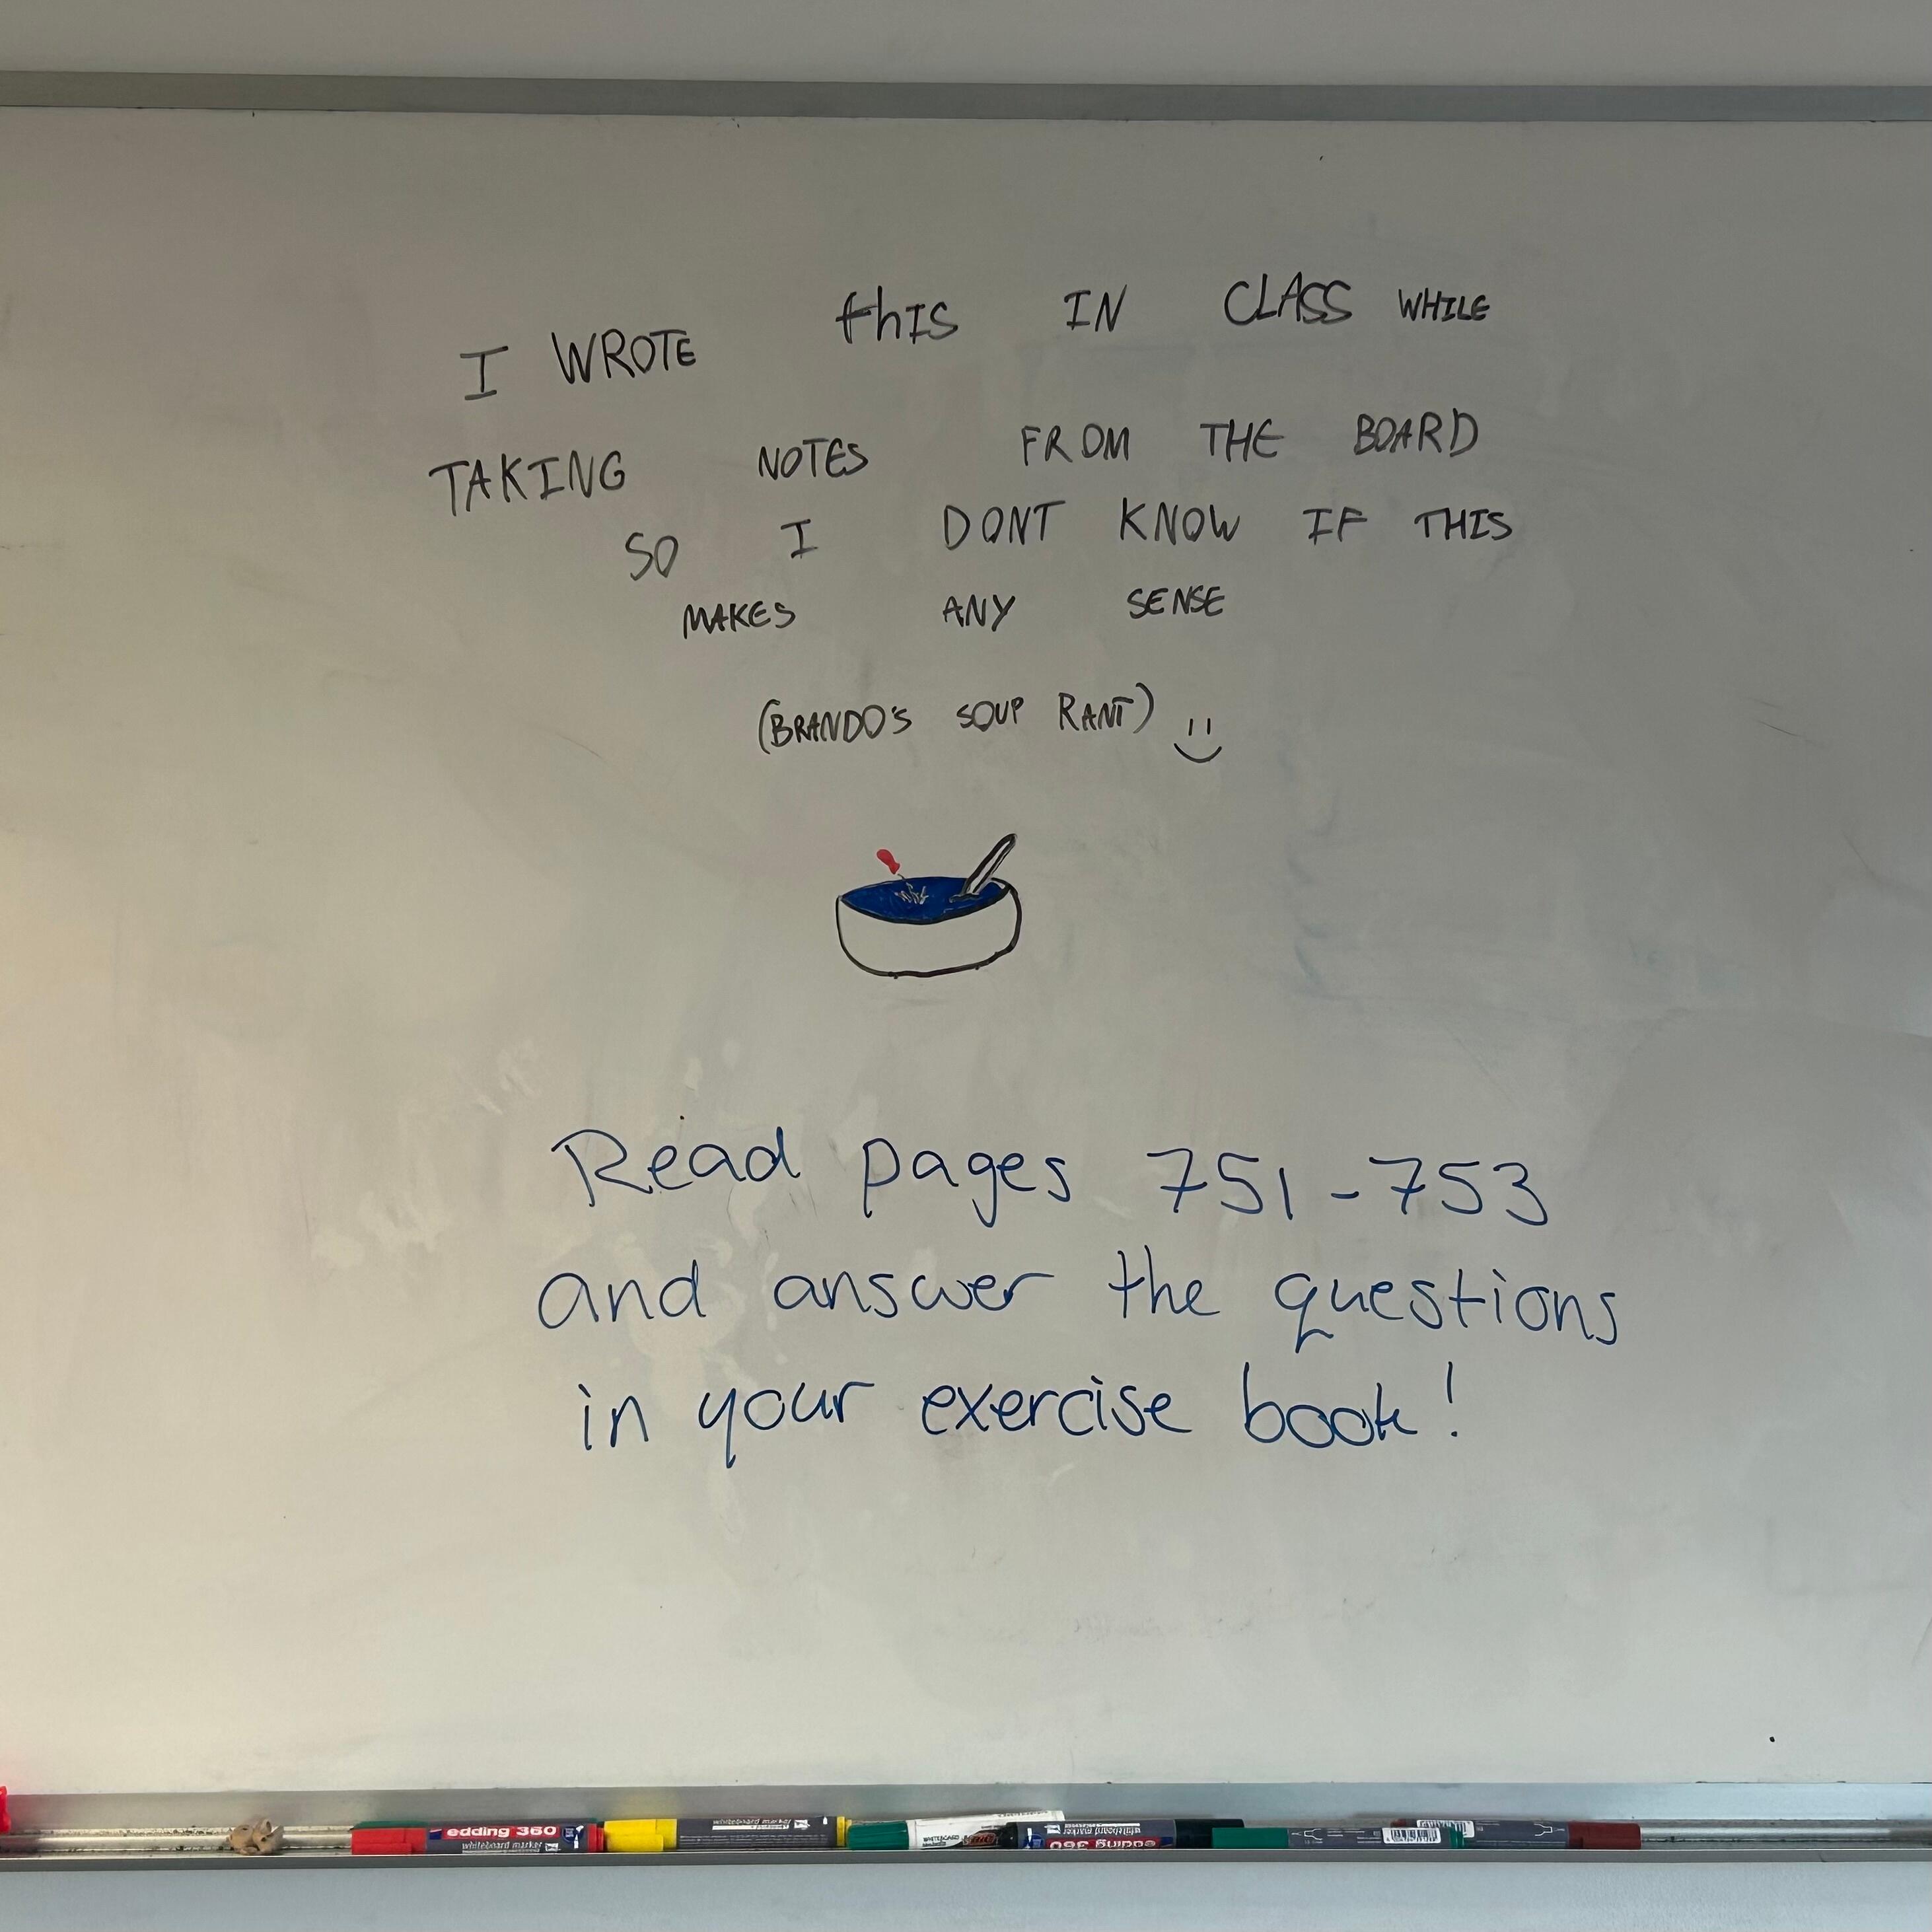 I WROTE thIS IN CLASS WHILE
TAKING NOTES FROM THE BOARD
SO I DONT KNOW IF THIS
MAKES ANY SENSE
(BRANDO'S SOUP RANT)
Read pages 751-753
and answer the questions
in your exercise book!
edding 360
whiteboard marker
edding 360
whiteboard marker